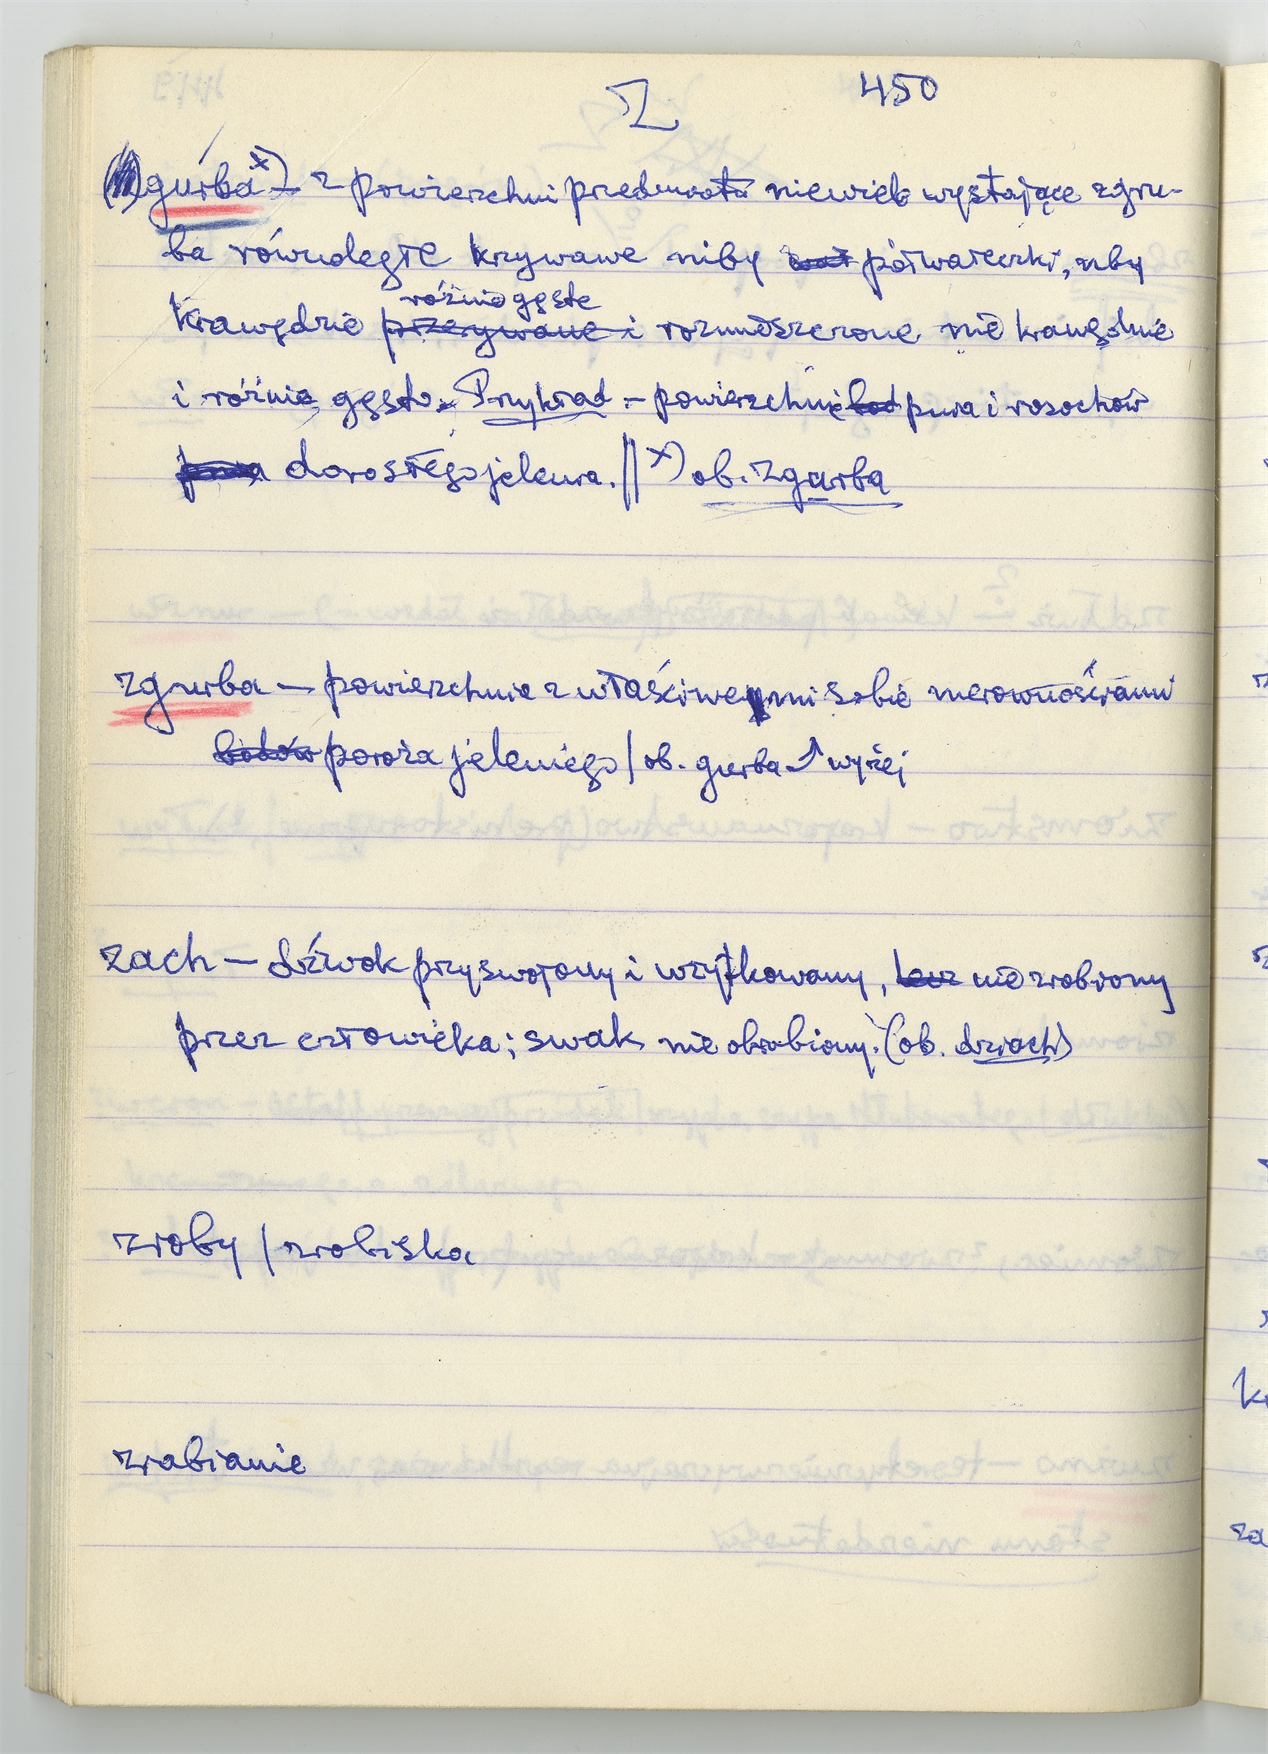 Z 450
gurba x) – z powierzchni przedmiotu niewiele wystające zgru-
ba równoległe krzywawe niby półwałeczki, niby
różnie gęste
krawędzie przerywane i rozmieszczone nie krawędzie
i różnie gęsto. Przykład – powierzchnie pnia i rosochów
dorosłego jelenia. || x) ob. zgurba
zgurba – powierzchnie z właściwemi sobie nierownościami
poroża jeleniego / ob. gurba ↑ wyżej
zach – dźwok przyswojony i użytkowany, nie zrobiony
przez człowieka; swak nie obrobiony. (ob. dziach)
zroby / zrobiska
zrabianie